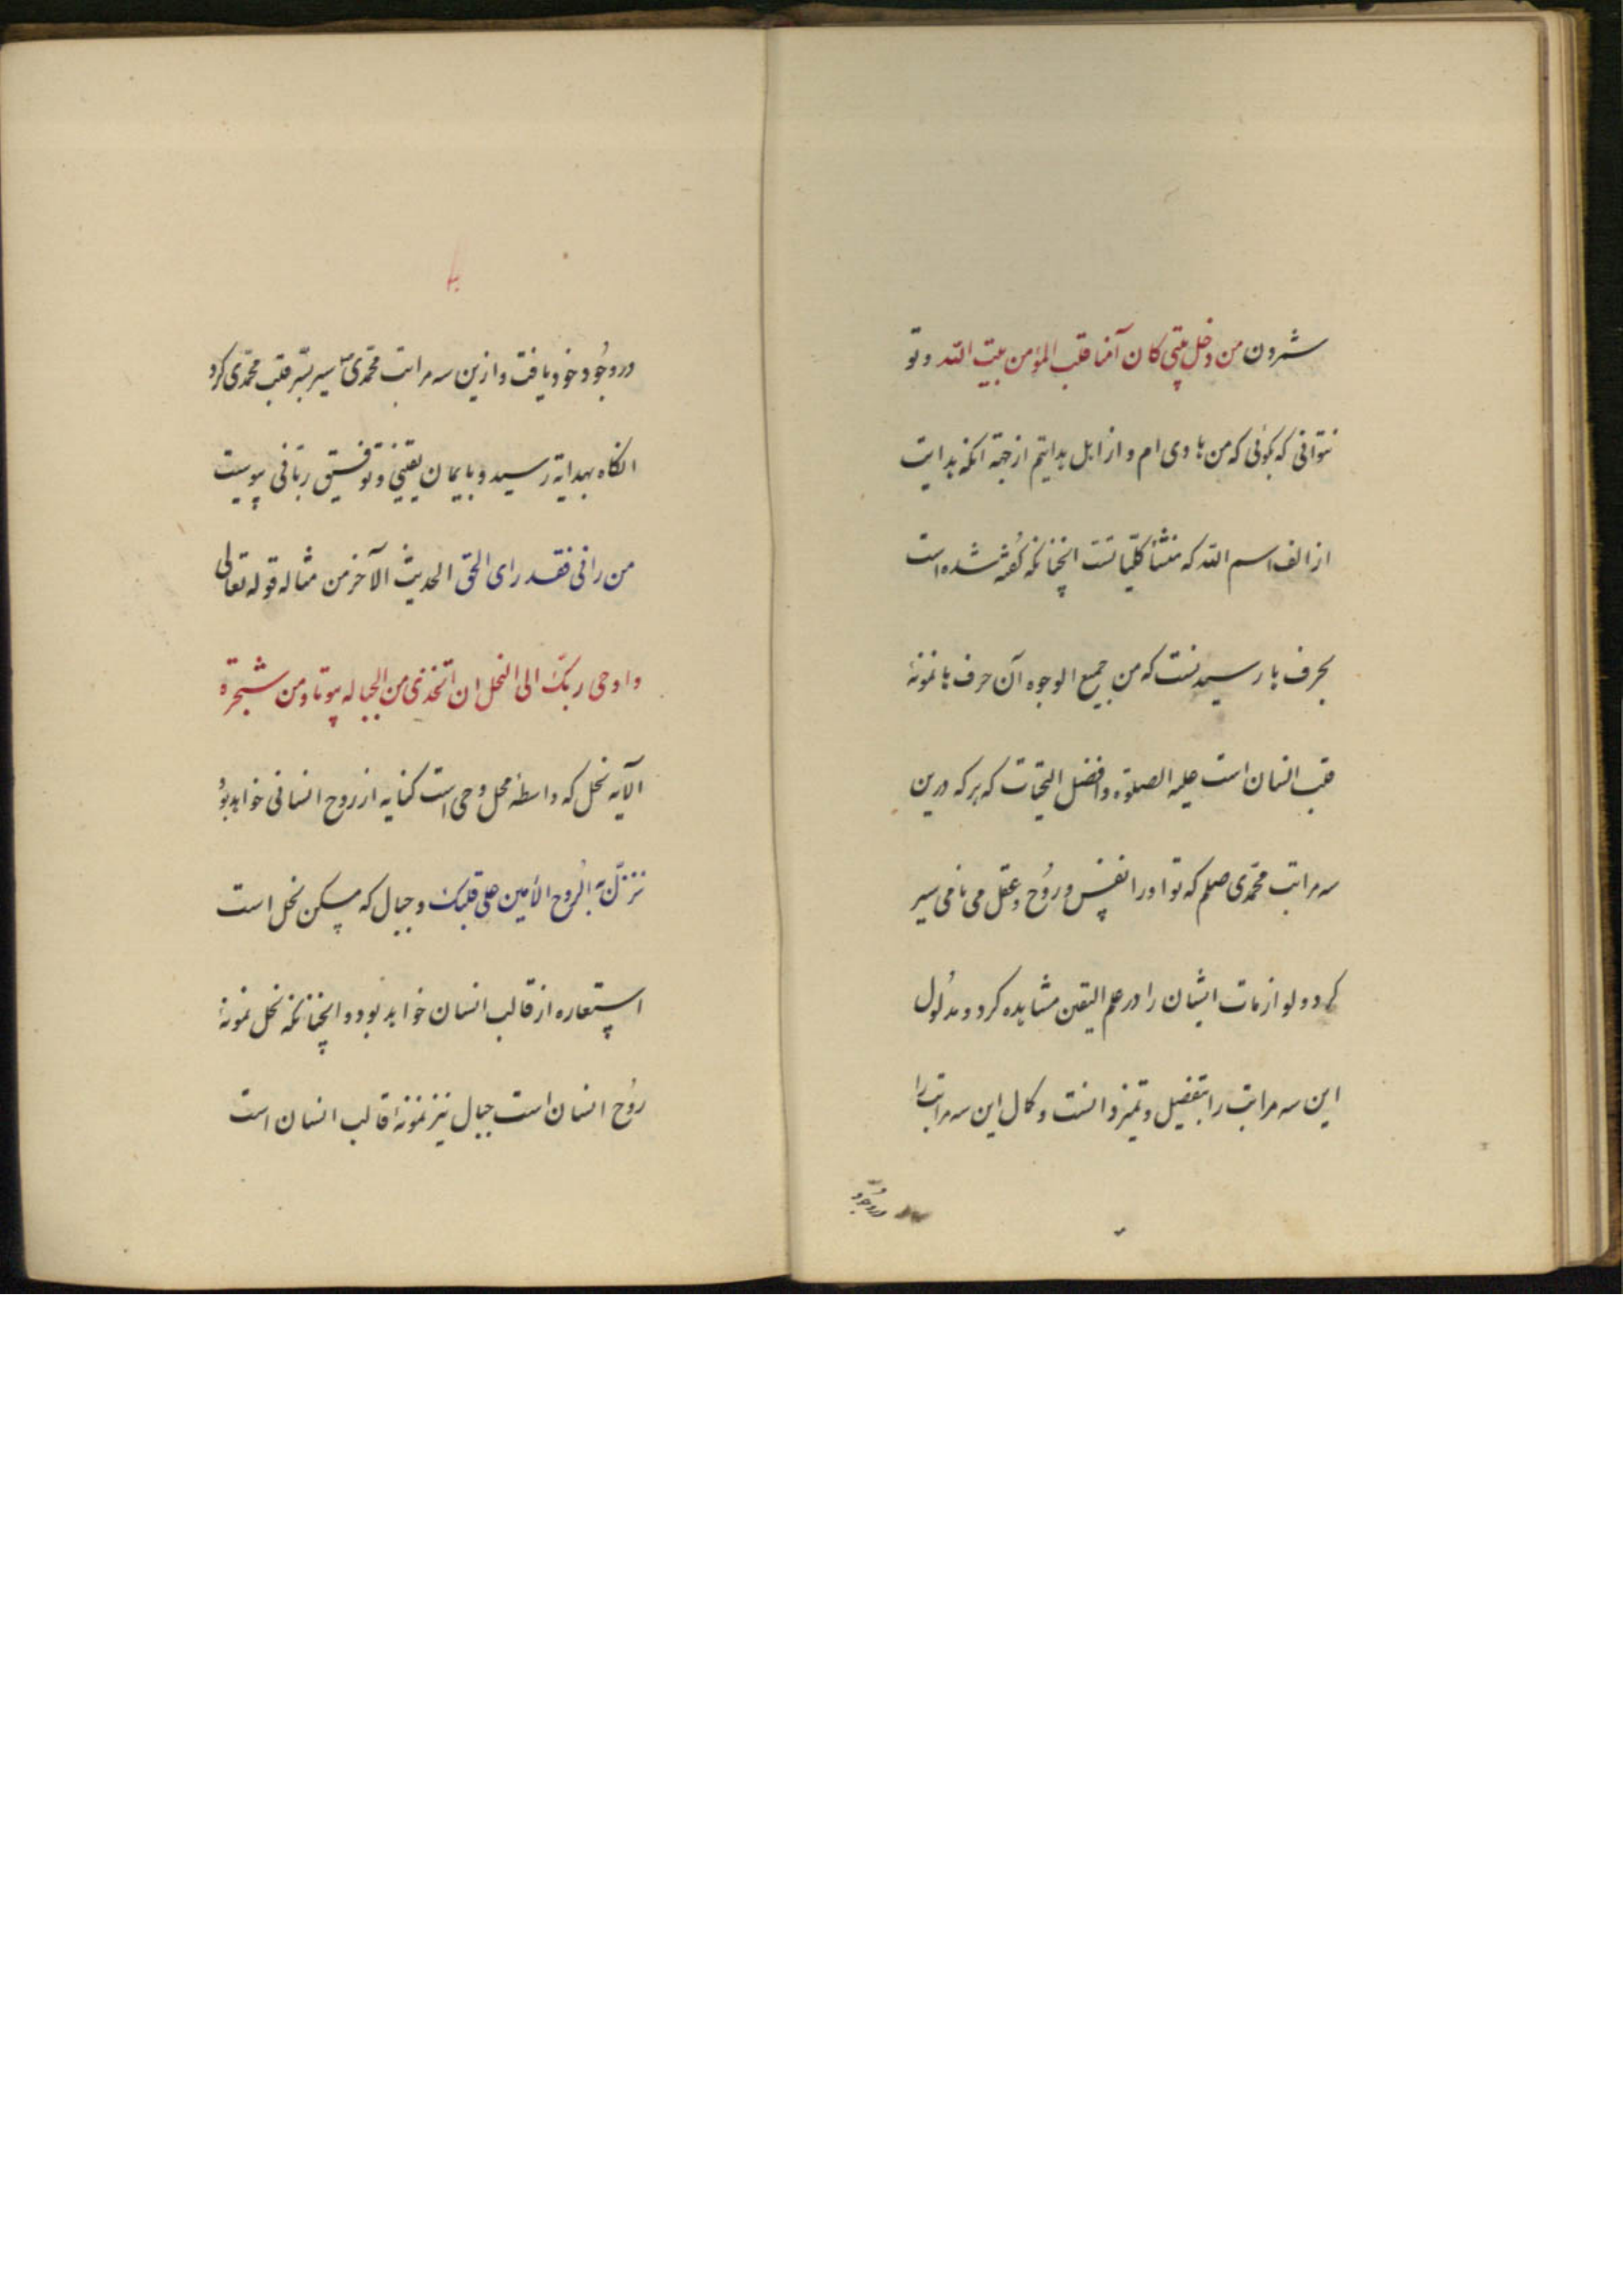 شرون من دخل بیتی کان آمنا قلب المؤمن بیت الله و تو
نتوانی که بگوئی که من هادی ام و از اهل هدایتم از جهة آنکه هدایت
از الف اسم الله که منشأ کلیاتست انچنانکه گفته شده است
بحرف با رسیدنست که من جمیع الوجوه آن حرف با نمونهٔ
قلب انسان است علیه الصلوة و افضل التحیات که هر که درین
سه مراتب محمدی صلعم که تو او را نفس و روح و عقل می نامی سیر
کرد و لوازمات ایشان را در علم الیقین مشاهده کرد و مدلول
این سه مراتب را بتفضیل و تمیز دانست و کمال این سه مراتب را
در وجود
در وجُود خود یافت و ازین سه مراتب محمّدی سیر بسّر قلب محمّدی کرد
انکاه بهدایة رسید و بایمان یقینی و توفیق ربّانی پیوست
من رانی فقد رای الحق الحدیث الآخر من مثاله قوله تعالی
و اوحی ربک الی النحل ان اتخذی من الجباله بیوتا و من شجرة
الآیه نحل که واسطه محل وحی است کنایه از روح انسانی خواهد بود
نزّل به الرُوح الأمین علی قلبک و جبال که مسکن نحل است
استعاره از قالب انسان خواهد بود و انچنانکه نحل نمونهٔ
روُح انسان است جبال نیز نمونهٔ قالب انسان است